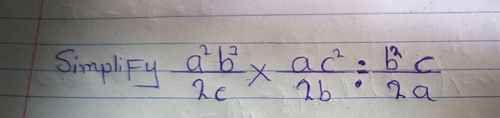 Simplify a²b³/2c × ac²/2b ÷ b²c/2a